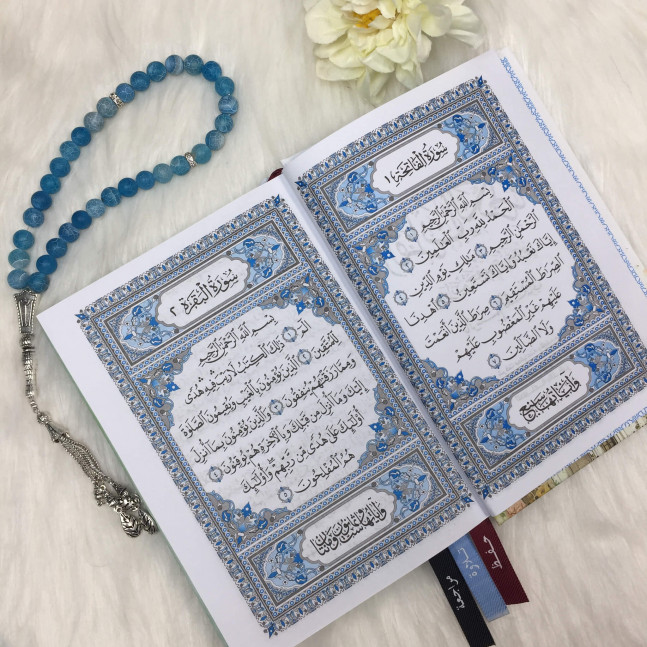 سُورَةُ الْفَاتِحَةِ ١
بِسْمِ اللَّهِ الرَّحْمَٰنِ الرَّحِيمِ ١
الْحَمْدُ لِلَّهِ رَبِّ الْعَالَمِينَ ٢
الرَّحْمَٰنِ الرَّحِيمِ ٣ مَالِكِ يَوْمِ الدِّينِ ٤
إِيَّاكَ نَعْبُدُ وَإِيَّاكَ نَسْتَعِينُ ٥ اهْدِنَا
الصِّرَاطَ الْمُسْتَقِيمَ ٦ صِرَاطَ الَّذِينَ أَنْعَمْتَ
عَلَيْهِمْ غَيْرِ الْمَغْضُوبِ عَلَيْهِمْ
وَلَا الضَّالِّينَ ٧
وَآيَاتُهَا سَبْعٌ
سُورَةُ الْبَقَرَةِ ٢
بِسْمِ اللَّهِ الرَّحْمَٰنِ الرَّحِيمِ
الٓمٓ ١ ذَٰلِكَ الْكِتَٰبُ لَا رَيْبَ فِيهِ هُدًى
لِّلْمُتَّقِينَ ٢ الَّذِينَ يُؤْمِنُونَ بِالْغَيْبِ وَيُقِيمُونَ الصَّلَاةَ
وَمِمَّا رَزَقْنَٰهُمْ يُنفِقُونَ ٣ وَالَّذِينَ يُؤْمِنُونَ بِمَا أُنزِلَ
إِلَيْكَ وَمَا أُنزِلَ مِن قَبْلِكَ وَبِالْآخِرَةِ هُمْ يُوقِنُونَ ٤
أُولَٰئِكَ عَلَىٰ هُدًى مِّن رَّبِّهِمْ وَأُولَٰئِكَ
هُمُ الْمُفْلِحُونَ ٥
وَآيَاتُهَا سِتٌّ وَثَمَانُونَ وَمِائَتَانِ
حفظ
تلاوة
مراجعة